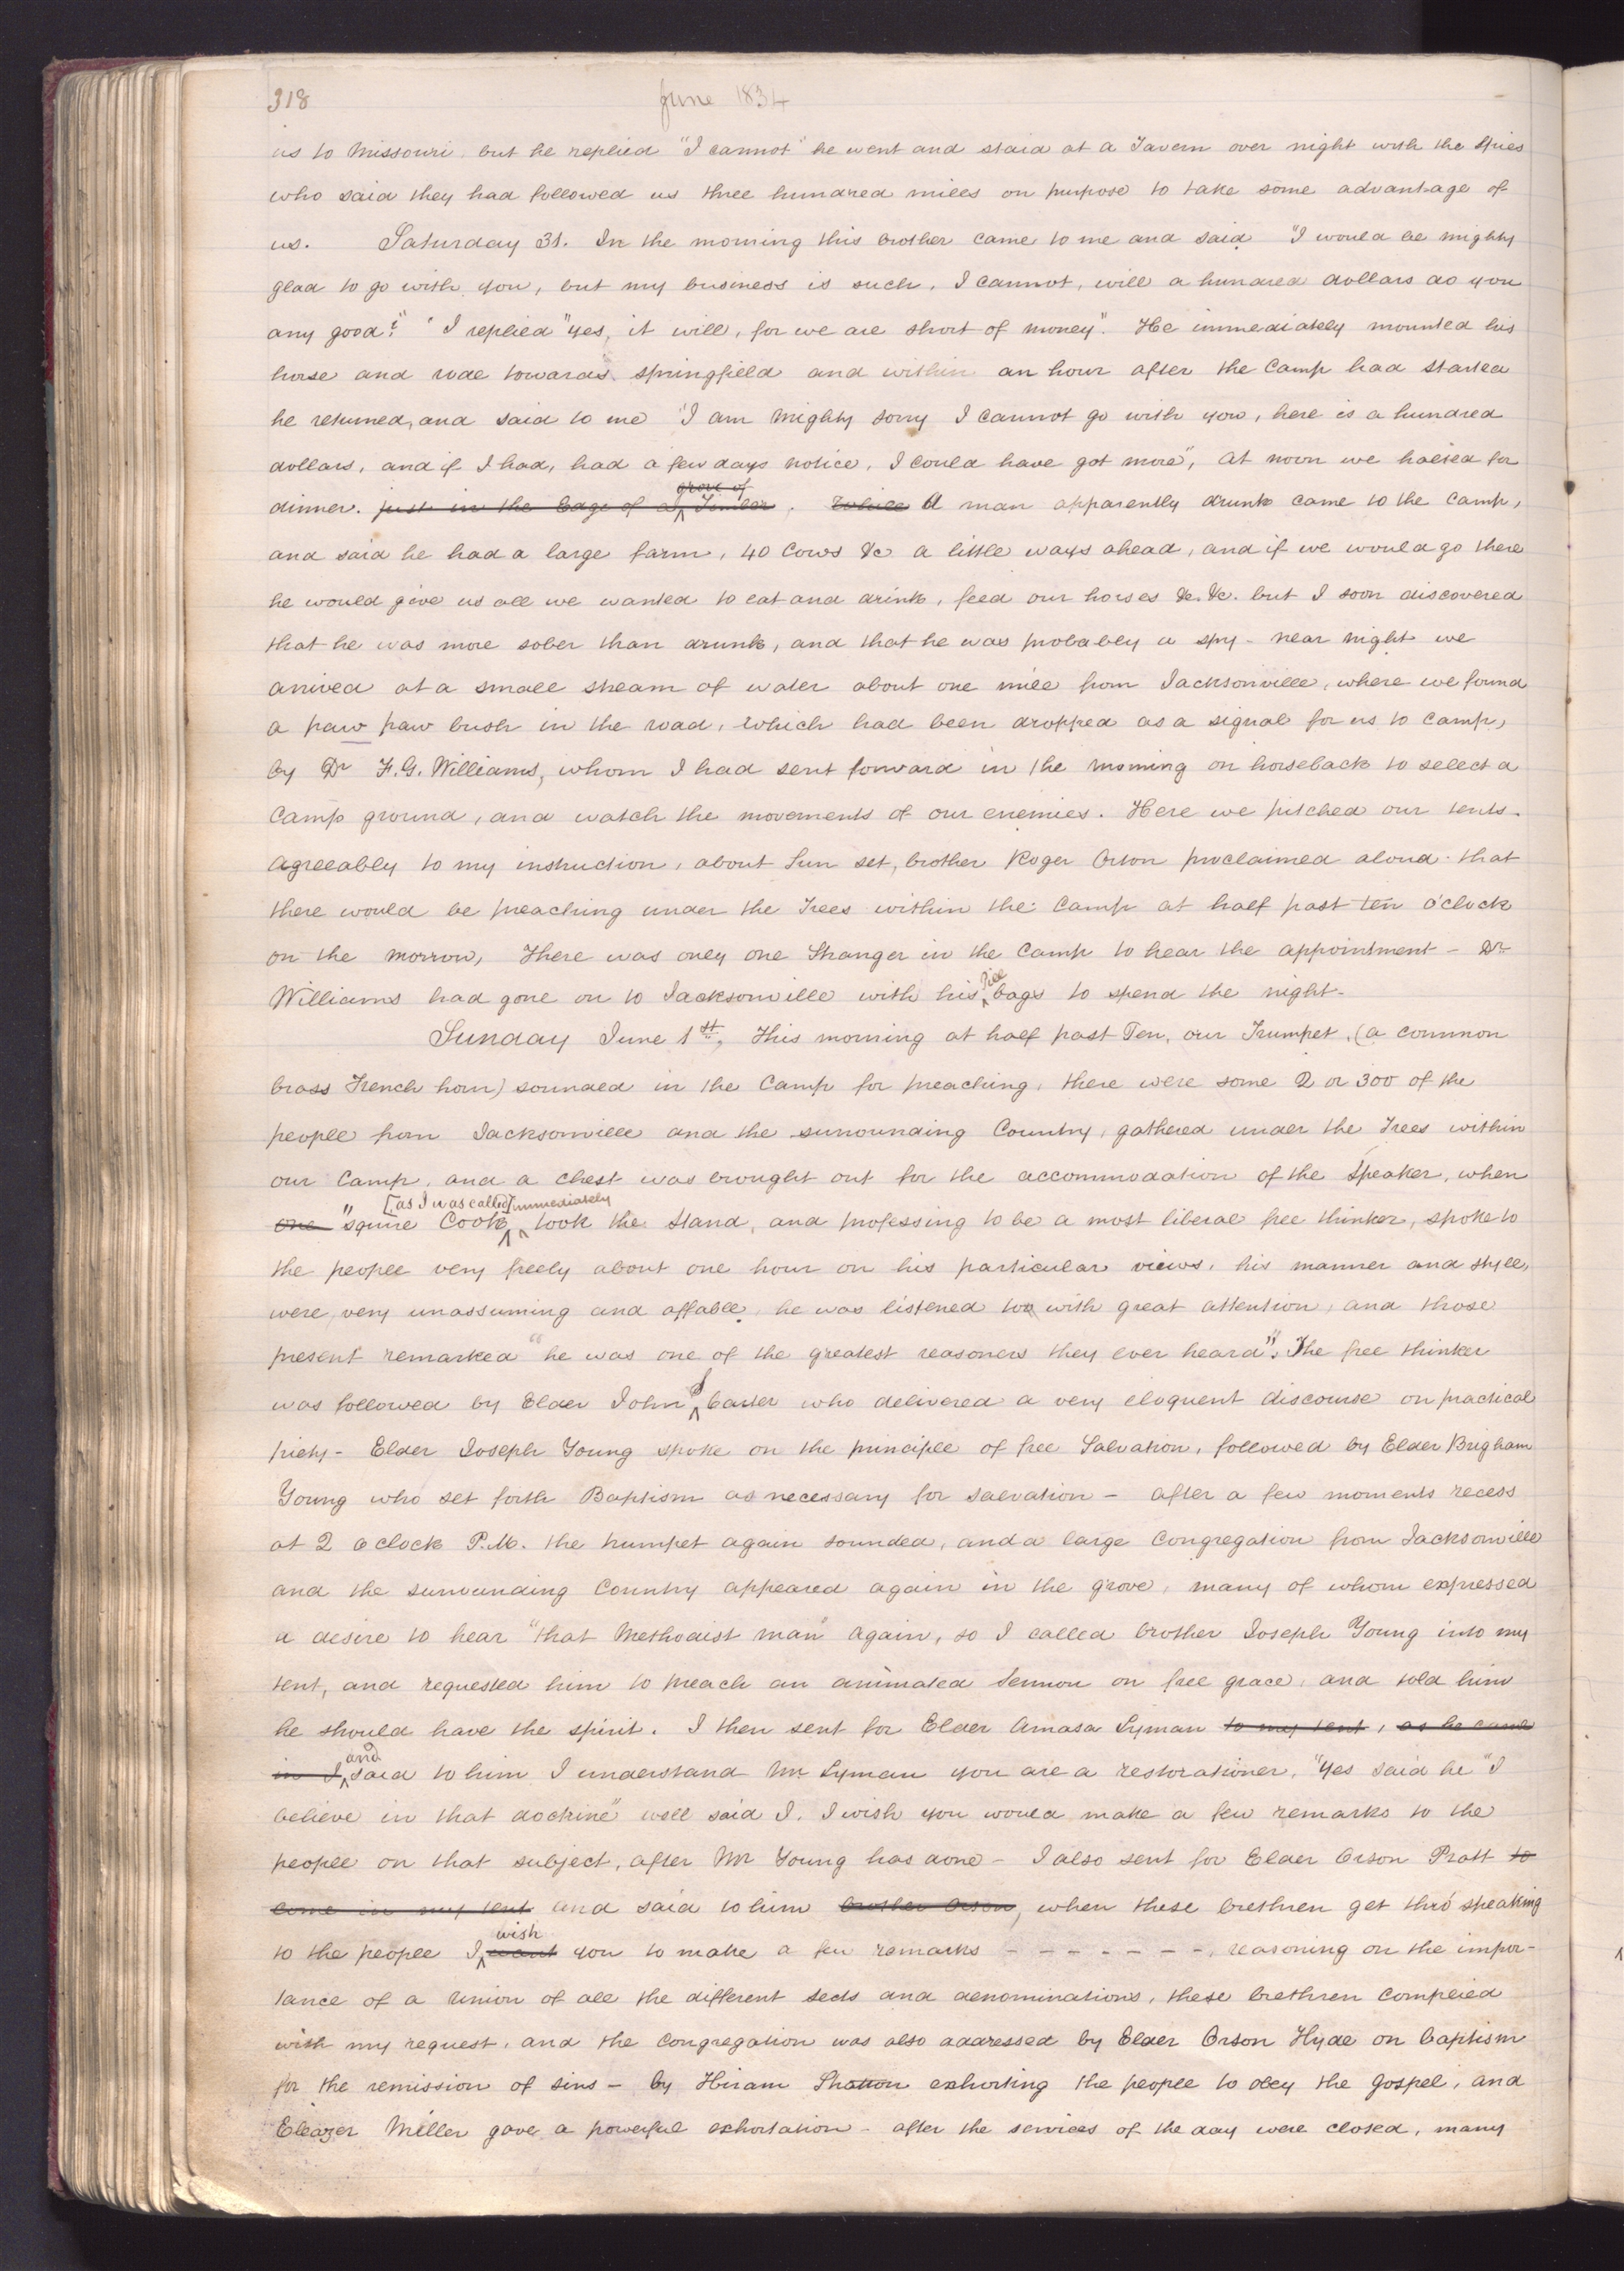 318 June 1834
us to Missouri, but he replied "I cannot" he went and staid at a Tavern over night with the spies
who said they had followed us three hundred miles on purpose to take some advantage of
us. Saturday 31. In the morning this brother came to me and said "I would be mighty
glad to go with you, but my business is such, I cannot, will a hundred dollars do you
any good?" I replied "yes, it will, for we are short of money". He immediately mounted his
horse and rode towards springfield and within an hour after the Camp had started
he returned, and said to me "I am mighty sorry I cannot go with you, here is a hundred
dollars, and if I had, had a few days notice, I could have got more", at noon we halted for
dinner. just in the Edge of a grove of Timber. While A man apparently drunk came to the Camp,
and said he had a large farm, 40 Cows &c a little ways ahead, and if we would go there
he would give us all we wanted to eat and drink, feed our horses &c. &c. but I soon discovered
that he was more sober than drunk, and that he was probably a spy - near night we
arrived at a small stream of water about one mile from Jacksonville, where we found
a paw paw bush in the road, which had been dropped as a signal for us to camp,
by Dr F. G. Williams, whom I had sent forward in the morning on horseback to select a
Camp ground, and watch the movements of our enemies. Here we pitched our tents.
agreeably to my instruction, about Sun set, brother Roger Orton proclaimed aloud that
there would be preaching under the Trees within the Camp at half past ten o'clock
on the morrow, There was only one Stranger in the Camp to hear the appointment - Dr
Williams had gone on to Jacksonville with his pill bags to spend the night.
Sunday June 1st, This morning at half past Ten, our Trumpet, (a common
brass French horn) sounded in the Camp for preaching, there were some 2 or 300 of the
people from Jacksonville and the surrounding Country, gathered under the Trees within
our Camp, and a chest was brought out for the accommodation of the Speaker, when
one "squire Cook [as I was called] immediately took the Stand, and professing to be a most liberal free thinker, spoke to
the people very freely about one hour on his particular views, his manner and style,
were very unassuming and affable, he was listened to with great attention, and those
present remarked "he was one of the greatest reasoners they ever heard". The free thinker
was followed by Elder John S Carter who delivered a very eloquent discourse on practical
piety - Elder Joseph Young spoke on the principle of free Salvation, followed by Elder Brigham
Young who set forth Baptism as necessary for salvation - after a few moments recess
at 2 o clock P.M. the trumpet again sounded, and a large Congregation from Jacksonville
and the surrounding Country appeared again in the grove, many of whom expressed
a desire to hear "that Methodist man" again, so I called brother Joseph Young into my
tent, and requested him to preach an animated Sermon on free grace, and told him
he should have the spirit. I then sent for Elder Amasa Lyman to my tent, as he came
in I and said to him I understand Mr Lyman you are a restorationer, "Yes said he "I
believe in that doctrine" well said I. I wish you would make a few remarks to the
people on that subject, after Mr Young has done - I also sent for Elder Orson Pratt to
come in my tent and said to him brother Orson, when these brethren get thro' speaking
to the people I want wish you to make a few remarks - - - - - - -, reasoning on the impor-
tance of a union of all the different sects and denominations, these brethren complied
with my request, and the congregation was also addressed by Elder Orson Hyde on baptism
for the remission of sins - by Hiram Stratton exhorting the people to obey the gospel, and
Eleazer Miller gave a powerful exhortation - after the services of the day were closed, many